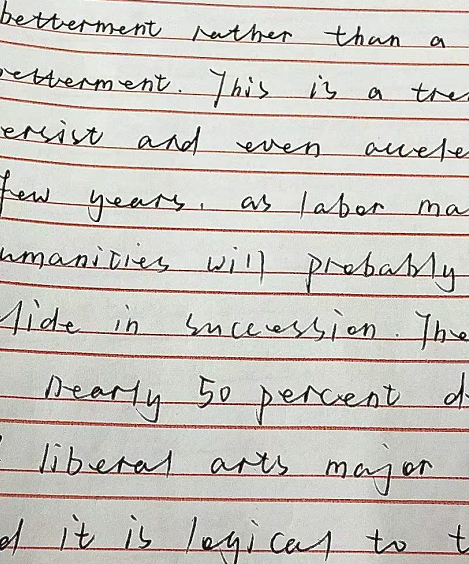 betterment rather than a
etterment. This is a tre
ersist and even accele
few years, as labor ma
umanities will probably
lide in succession. The
nearly 50 percent d
liberal arts major
d it is logical to t